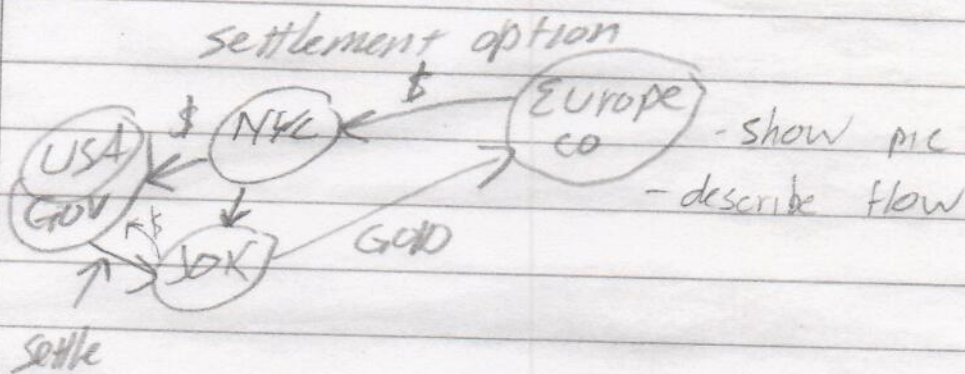 settlement option
$
$
NYC
Europe
CO
- show pic
- describe flow
USA
GOV
$
GOLD
settle